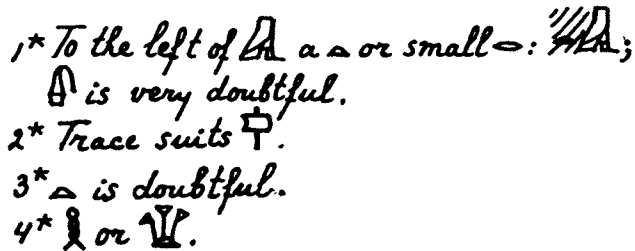 1* To the left of a or small : ;
is very doubtful.
2* Trace suits .
3* is doubtful.
4* or .